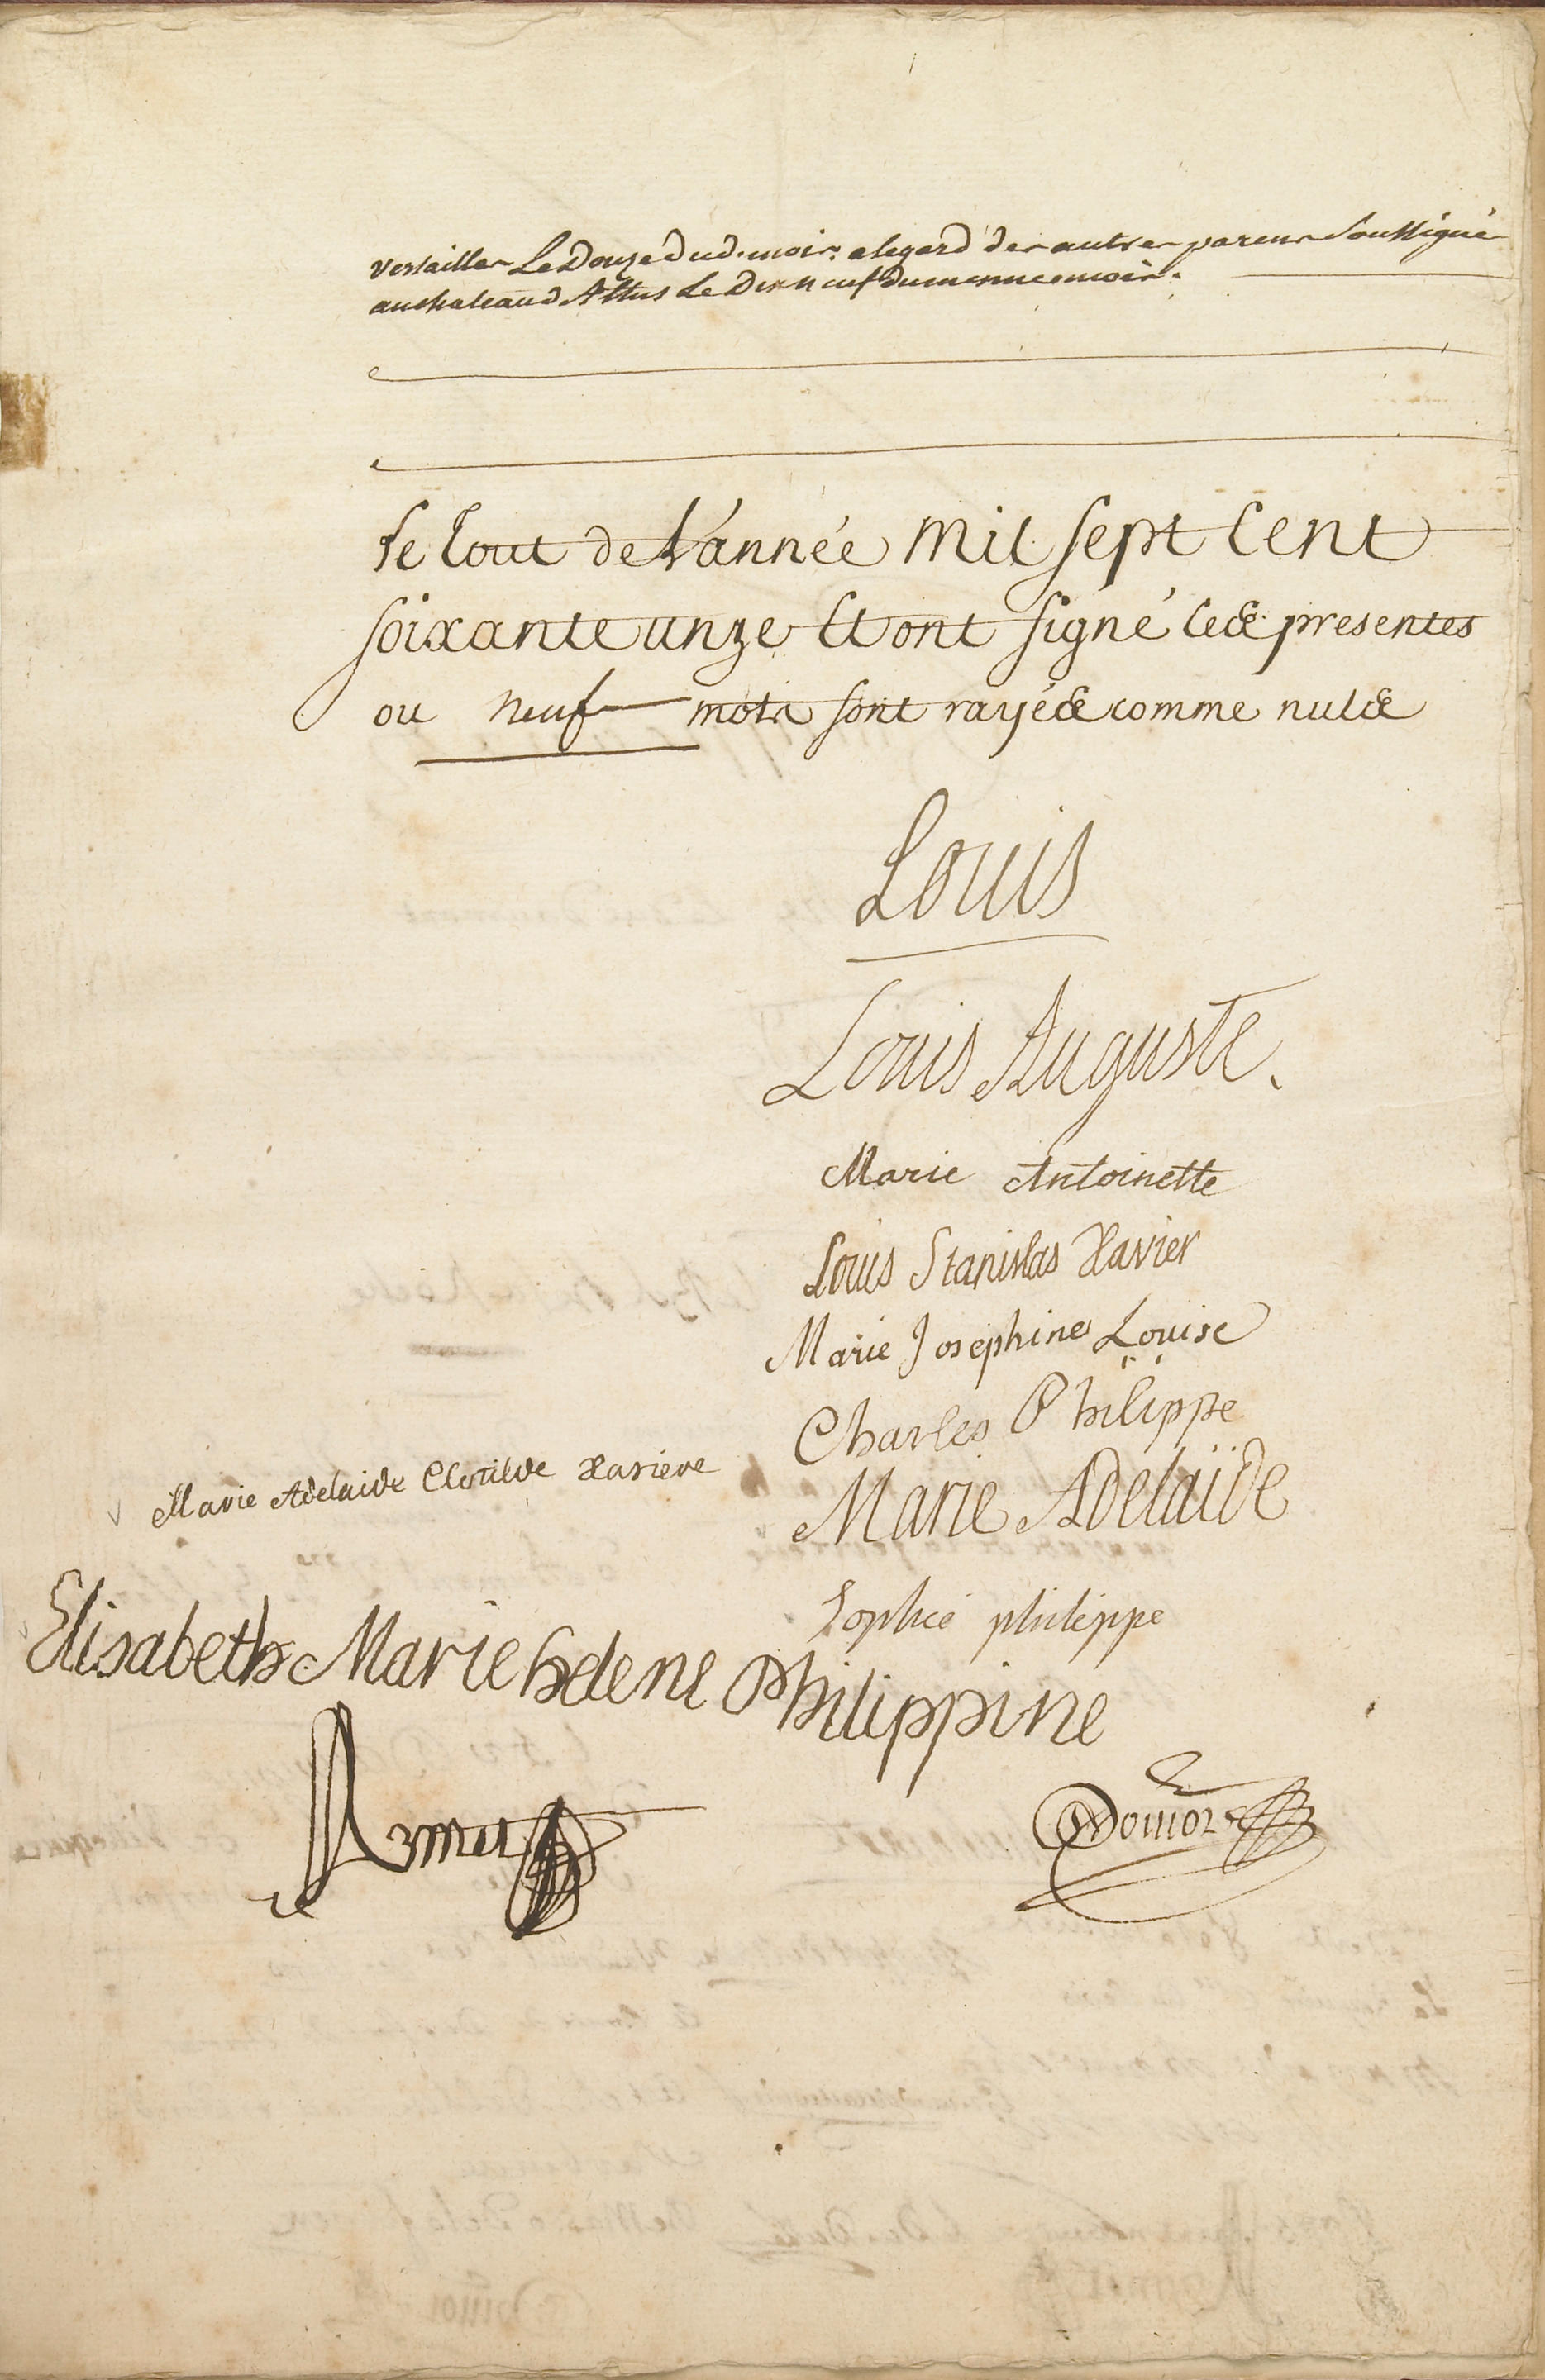 versailles Le Douze dud. mois. a legard des autres parens Soussignés
au chateau d Attus Le Dix neuf du mesme mois.
le tout de l'année mil sept cent
soixante unze Et ont signé ces presentes
ou neuf mots sont rayés comme nuls
Louis
Louis Auguste.
Marie Antoinette
Louis Stanislas Xavier
Marie Josephine Louise
Charles Philippe
Marie Adelaide Clotilde Xaviere
Marie Adelaïde
Sophie philippe
Elisabeth Marie helene Philippine